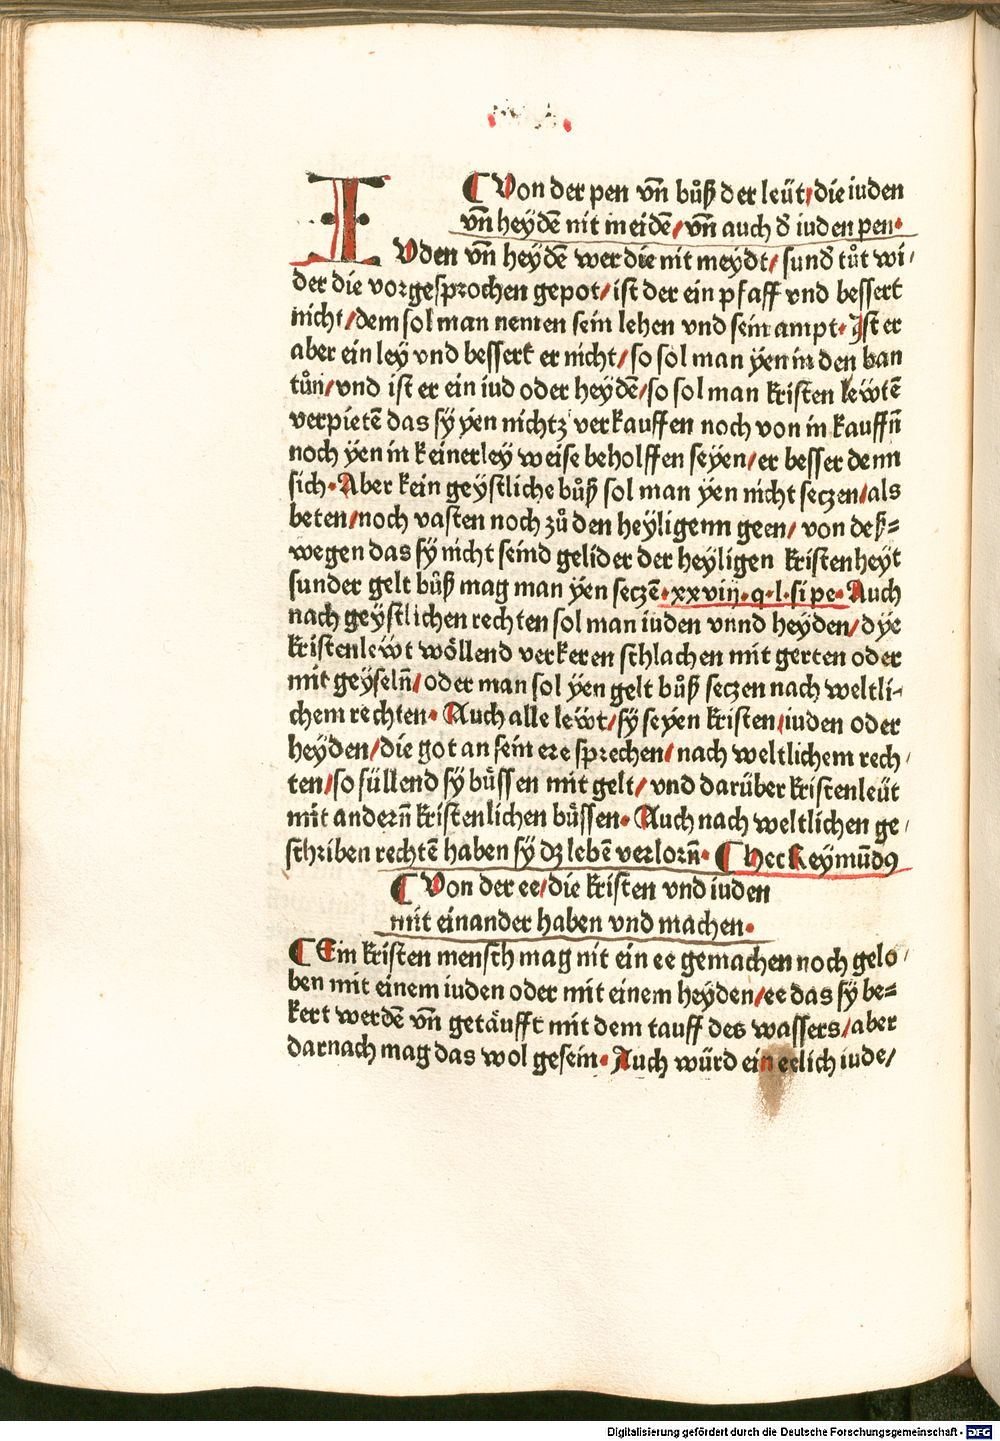 ⸿ Von der pen vn̄ bůß der leüt/die iuden
vn̄ heydē nit meidē/vn̄ auch d̄ iuden pen·
IVden vn̄ heydē wer die nit meydt/sund̄ tůt wi/
der die vorgesprochen gepot/ist der ein pfaff vnd bessert
nicht/dem sol man nemen sein lehen vnd sein ampt·Ist er
aber ein ley vnd bessert er nicht/so sol man yen in den ban
tůn/vnd ist er ein iud oder heydē/so sol man kristen lewtē
verpietē das sy yen nichtz verkauffen noch von in kauffn̄
noch yen in keinerley weise beholffen seyen/er besser denn
sich·Aber kein geystliche bůß sol man yen nicht seczen/als
beten/noch vasten noch zů den heyligenn geen/von deß=
wegen das sy nicht seind gelider der heyligen kristenheyt
sunder gelt bůß mag man yen seczē·xxviij·q·l·si pe·Auch
nach geystlichen rechten sol man iuden vnnd heyden/dye
kristenlewt wöllend verkeren schlachen mit gerten oder
mit geyseln̄/oder man sol yen gelt bůß seczen nach weltli-
chem rechten·Auch alle lewt/sy seyen kristen/iuden oder
heyden/die got an sein ere sprechen/nach weltlichem rech/
ten/so süllend sy büssen mit gelt/vnd darüber kristenleüt
mit andern̄ kristenlichen büssen·Auch nach weltlichen ge/
schriben rechtē haben sy dz lebē verlorn̄·⸿ Hec Reymūdꝰ
⸿ Von der ee/die kristen vnd iuden
mit einander haben vnd machen·
⸿ Ein kristen mensch mag nit ein ee gemachen noch gelo/
ben mit einem iuden oder mit einem heyden/ee das sy be=
kert werdē vn̄ getäufft mit dem tauff des wassers/aber
darnach mag das wol gesein·Auch würd ein eelich iude/
Digitalisierung gefördert durch die Deutsche Forschungsgemeinschaft - DFG